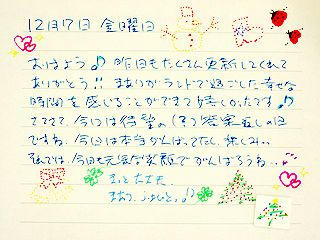 12月17日 金曜日
おはよう♪ 昨日もたくさん更新してくれて
ありがとう!! まありがランドで過ごした幸せな
時間を感じることができて楽しかったです♪
さてさて、今日は待望の 答案返しの日
ですね。今日は本当がんばってたし、楽しみ。。
私では、今日も元気な笑顔でがんばろうね。。
きっと大丈夫